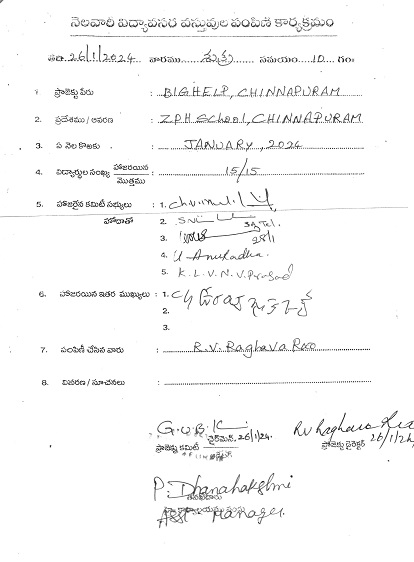 నెలవారీ విద్యావసర వస్తువుల పంపిణి కార్యక్రమం
తేది. 26/1/2024 వారము శుక్ర సమయం 10 గం:
1. ప్రాజెక్టు పేరు : BIGHELP, CHINNAPURAM
2. ప్రదేశము / ఆవరణ : ZPH School, CHINNAPURAM
3. ఏ నెల కొఱకు : JANUARY, 2024
4. విద్యార్థుల సంఖ్య హాజరయిన / మొత్తము : 15/15
5. హాజరైన కమిటీ సభ్యులు : 1.
హోదాతో 2.
3.
4. U Anuradha.
5. K.L.V.N.V. Prasad
6. హాజరయిన ఇతర ముఖ్యులు : 1.
2.
3.
7. పంపిణీ చేసిన వారు : R.V. Raghava Rao
8. వివరణ / సూచనలు :
G.V.B.K
చైర్మెన్. 26/1/24.
ప్రాజెక్టు కమిటీ
RV Raghava Rao
ప్రాజెక్టు డైరెక్టర్ 26/1/24
P. Dhanalakshmi
Asst Manager.